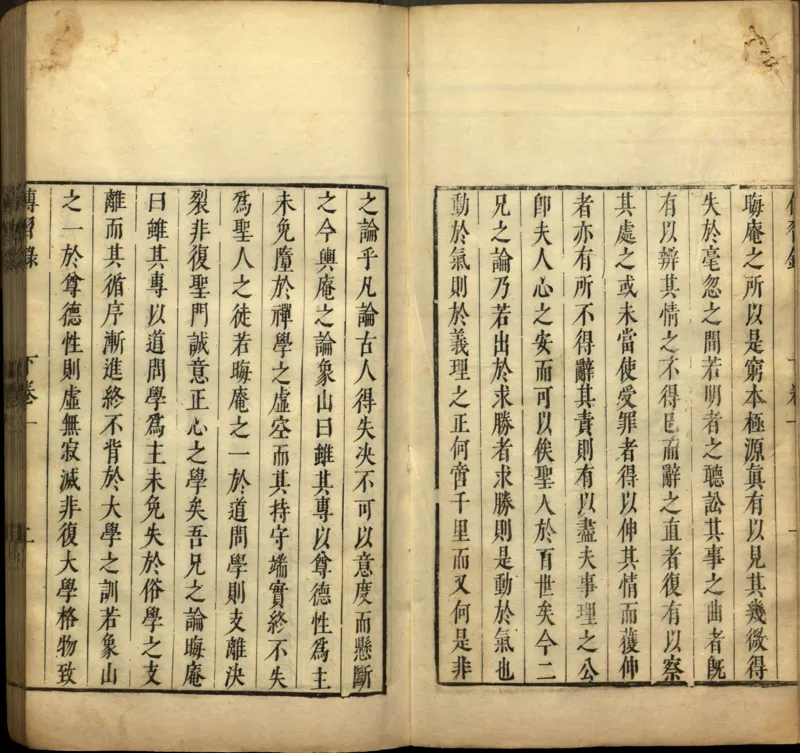 晦庵之所以是窮本極源真有以見其幾微得
失於毫忽之間若明者之聽訟其事之曲者旣
有以辨其情之不得已而辭之直者復有以察
其處之或未當使受罪者得以伸其情而獲伸
者亦有所不得辭其責則有以盡夫事理之公
卽夫人心之安而可以俟聖人於百世矣今二
兄之論乃若出於求勝者求勝則是動於氣也
動於氣則於義理之正何啻千里而又何是非
之論乎凡論古人得失決不可以意度而懸斷
之今輿庵之論象山曰雖其專以尊德性爲主
未免墮於禪學之虛空而其持守端實終不失
爲聖人之徒若晦庵之一於道問學則支離決
裂非復聖門誠意正心之學矣吾兄之論晦庵
曰雖其專以道問學爲主未免失於俗學之支
離而其循序漸進終不背於大學之訓若象山
之一於尊德性則虛無寂滅非復大學格物致
傳習錄 下卷一